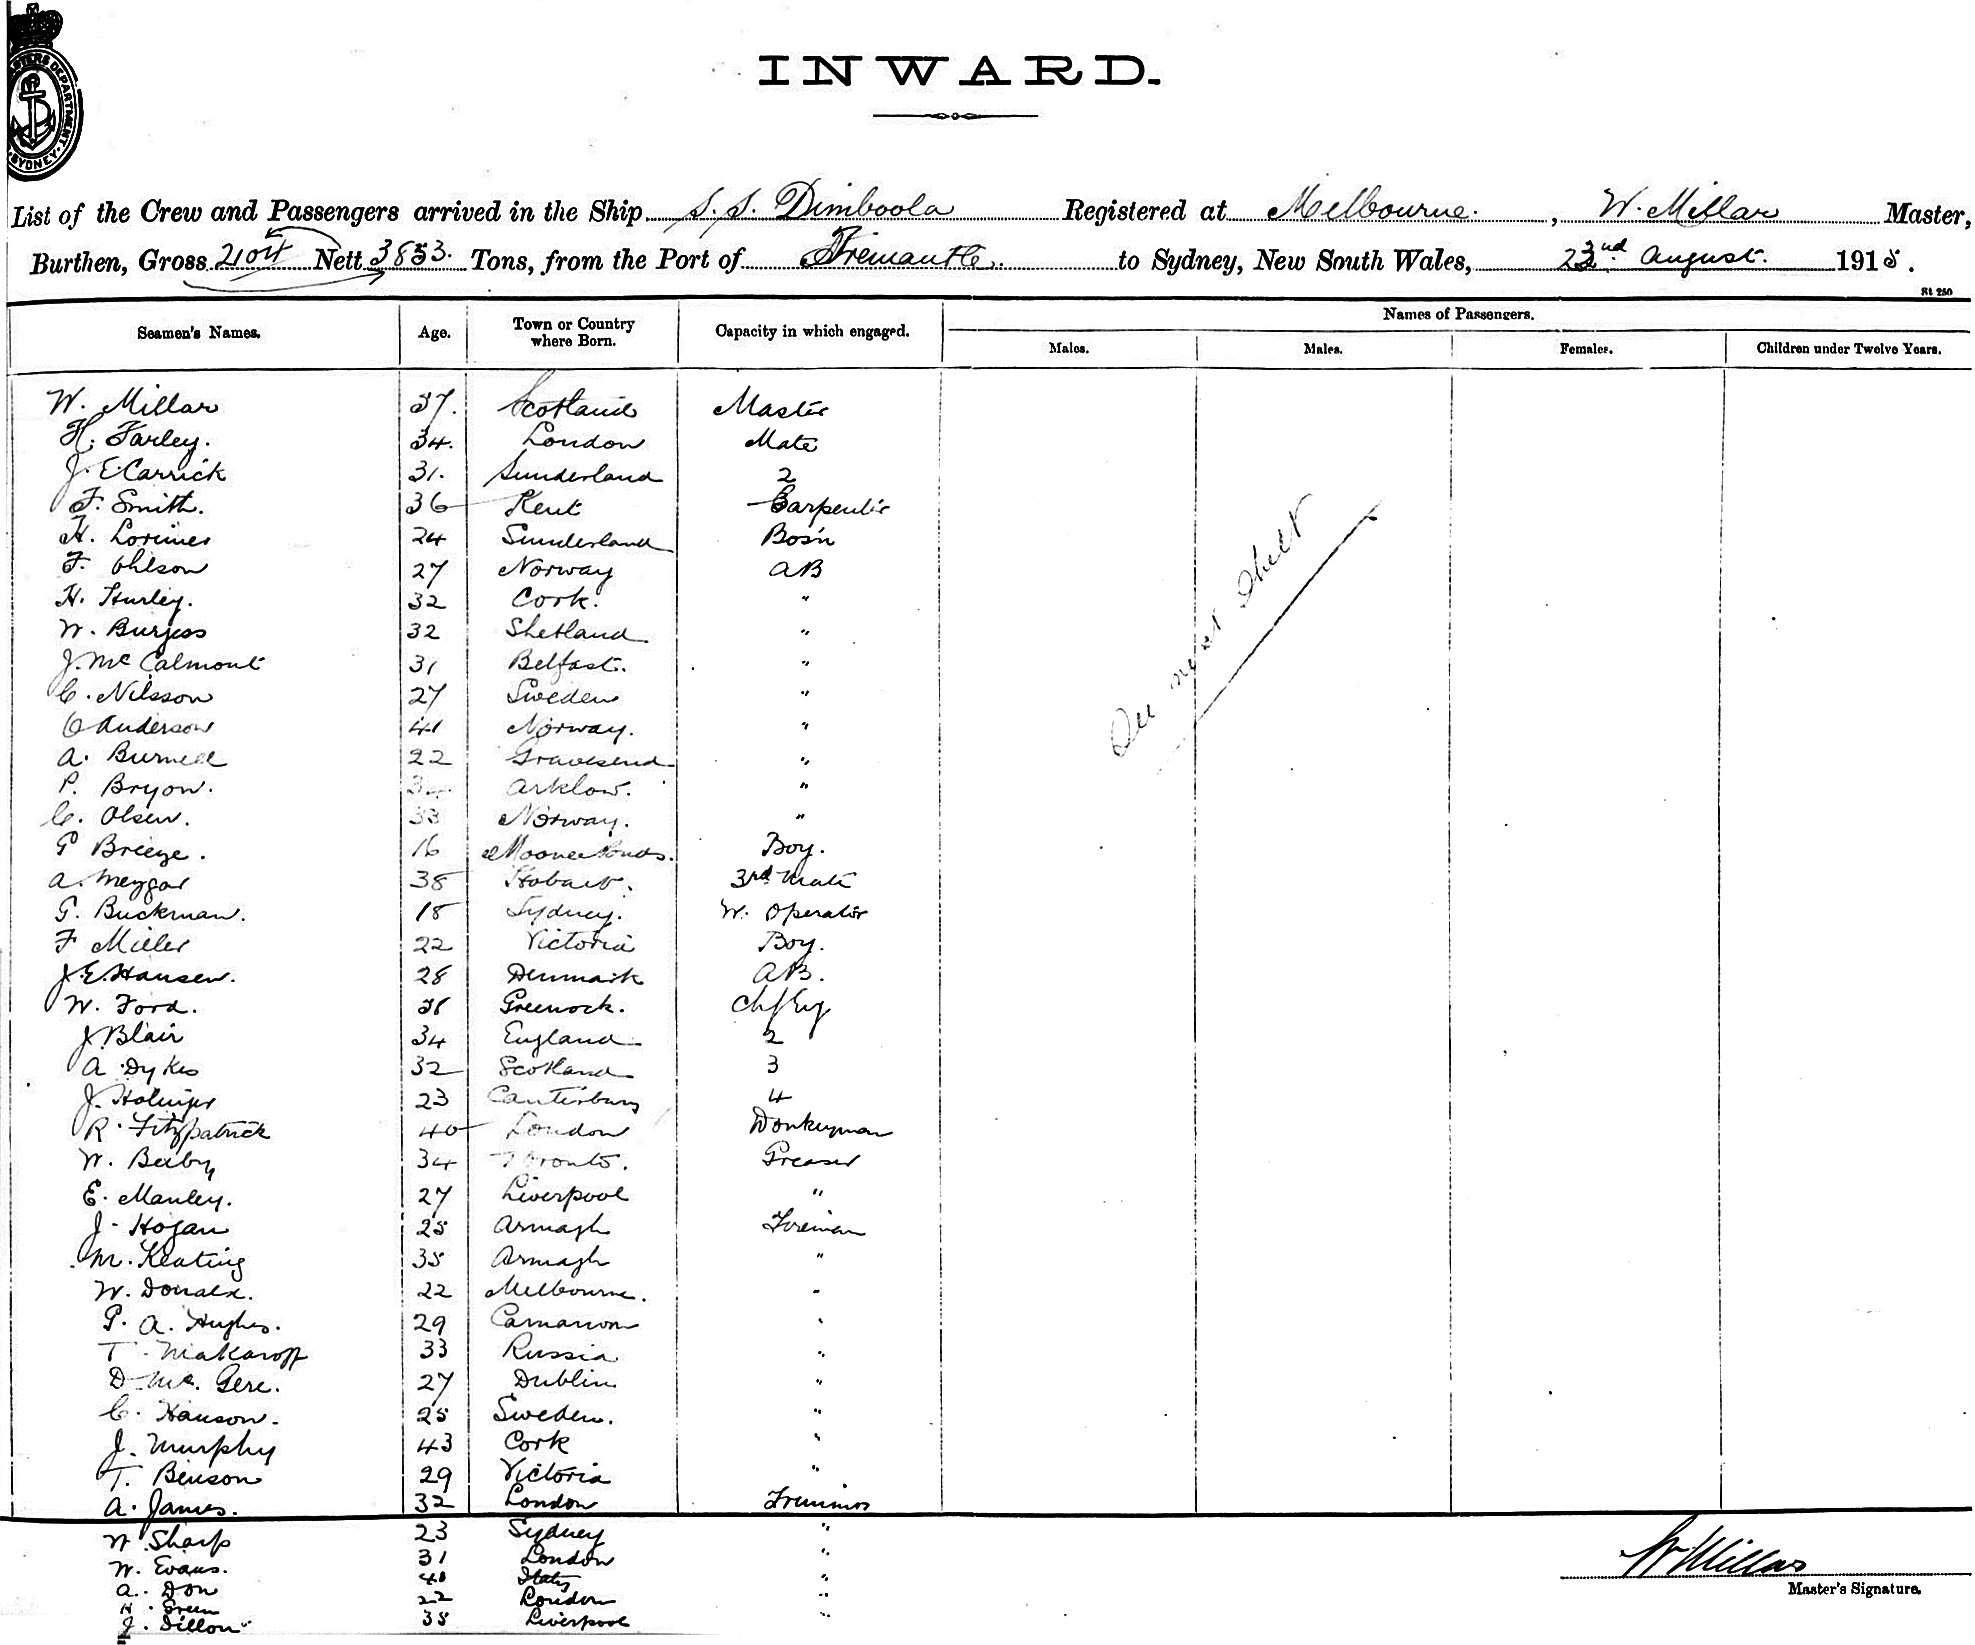 INWARD.
MASTERS DEPARTMENT. SYDNEY.
List of the Crew and Passengers arrived in the Ship S.S. Dimboola Registered at Melbourne. , W. Millar Master,
Burthen, Gross 2104 Nett 3853. Tons, from the Port of Fremantle. to Sydney, New South Wales, 23nd August. 1915.
St 250
Seamen's Names. Age. Town or Country where Born. Capacity in which engaged. Names of Passengers.
Males. Males. Females. Children under Twelve Years.
W. Millar 37. Scotland Master
H. Farley. 34. London Mate
J. E. Carrick 31. Sunderland 2
F. Smith. 36 Kent Carpenter
H. Lorimer 24 Sunderland Bos'n
F. Ohlson 27 Norway AB
H. Hurley. 32 Cork. "
W. Burgess 32 Shetland "
J. McCalmont 31 Belfast. "
C. Nilsson 27 Sweden "
C Anderson 41 Norway. "
A. Burnell 22 Gravesend "
P. Bryon. Arklow. "
C. Olsen. 33 Norway. "
G Breeze. 16 Moonee Ponds. Boy.
A. Meygar 38 Hobart. 3rd Mate
G. Buckman. 18 Sydney. W. Operator
F Miller 22 Victoria Boy.
J. E. Hansen. 28 Denmark AB.
W. Ford. Greenock. Chf Eng
J. Blair 34 England 2
A. Dykes 32 Scotland 3
J. 23 Canterbury 4
R. Fitzpatrick 40 London Donkeyman
W. 34 Toronto. Greaser
E. Manley. 27 Liverpool "
J. Hogan 25 Armagh Fireman
M. Keating 35 Armagh "
W. Donald. 22 Melbourne. "
G. A. Hughes. 29 Carnarvon "
T. Makaroff 33 Russia "
D. Mc. Gere. 27 Dublin "
C. Hanson. 25 Sweden. "
J. Murphy 43 Cork "
T. Benson 29 Victoria "
A. James. 32 London Trimmer
W Sharp 23 Sydney "
W. Evans. 31 London "
A. Don 40 Italy "
H. Green 22 London "
J. Dillon 35 Liverpool "
On next Sheet
W Millar
Master's Signature.